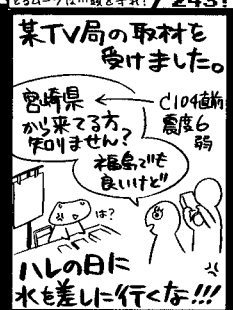 / 243!
某TV局の取材を
受けました。
宮崎県
から来てる方
知りません?
C104直前
震度6
弱
福島でも
良いけど
は?
ハレの日に
水を差しに行くな!!!